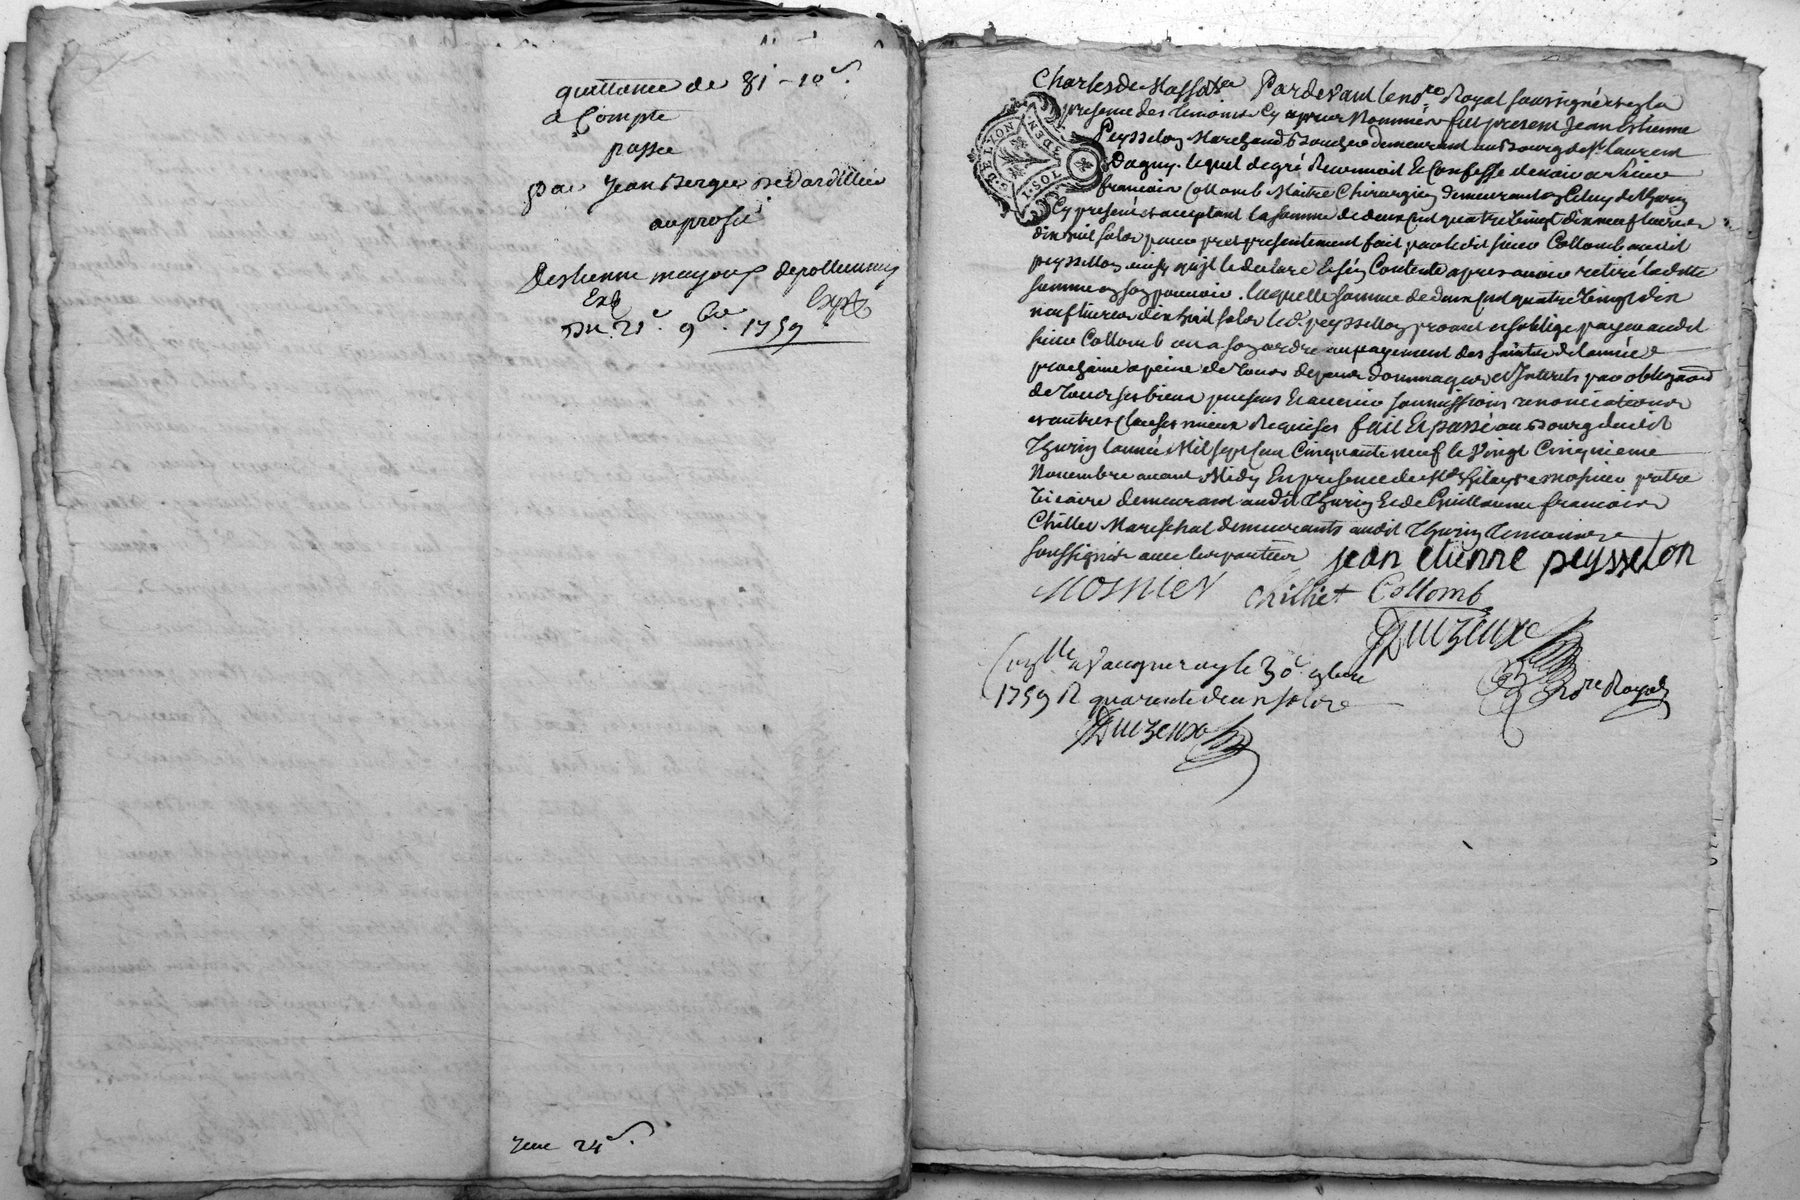 quittance de 81 - 10 s.
a Compte
passée
par Jean Berger de Dardillieu
au profit
D'estienne mayoux de pollionnay
Exp Expé
Du 21e 9bre 1759
Jeue 24 s.
Charles de Masso Pardevant le nore Royal soussigné et en la
GEN. DE LYON
1. SOL. 3 DEN.
presence des temoins Cy apres Nommés fut present Jean Estienne
Peysselon Marchand Boucher demeurant au Bourg de st laurent
Dagny. lequel de gré Reconnoit Et Confesse devoir a sieur
francois Collomb Maitre Chirurgien demeurant en Celuy de thurin
Cy present et acceptant la somme de deux cent quatre vingt dix neuf livres
dix huit sols pour pret presentement fait par ledit sieur Collomb audit
peysselon ainsy qu'jl le declare Et s'en Contente apres avoir retiré ladite
somme en son pouvoir. laquelle somme de deux cent quatre vingt dix
neuf livres dix huit sols led. peysselon promet et s'oblige payer audit
sieur Collomb ou a son ordre au payement des saints de l'année
prochaine a peine de tous depens dommages et Interets par obligaon
de tous ses biens presens Et avenir soumissions renonciations
et autres Clauses mieux Requises fait Et passé au Bourg dudit
thurin l'année Mil sept Cent Cinquante neuf le Vingt Cinquieme
Novembre avant Midy En presence de Me hilayre mosnier pretre
Vicaire demeurant audit thurin Et de Guillaume francois
Chillet Mareschal demeurants audit thurin temoins
soussignés avec les parties jean etienne peysselon
Mosnier Chilliet Collomb
Duizeux
nore Royal
Conlle a Vaugneray le 30e 9bre
1759 R quarente deux sols
Duizeux